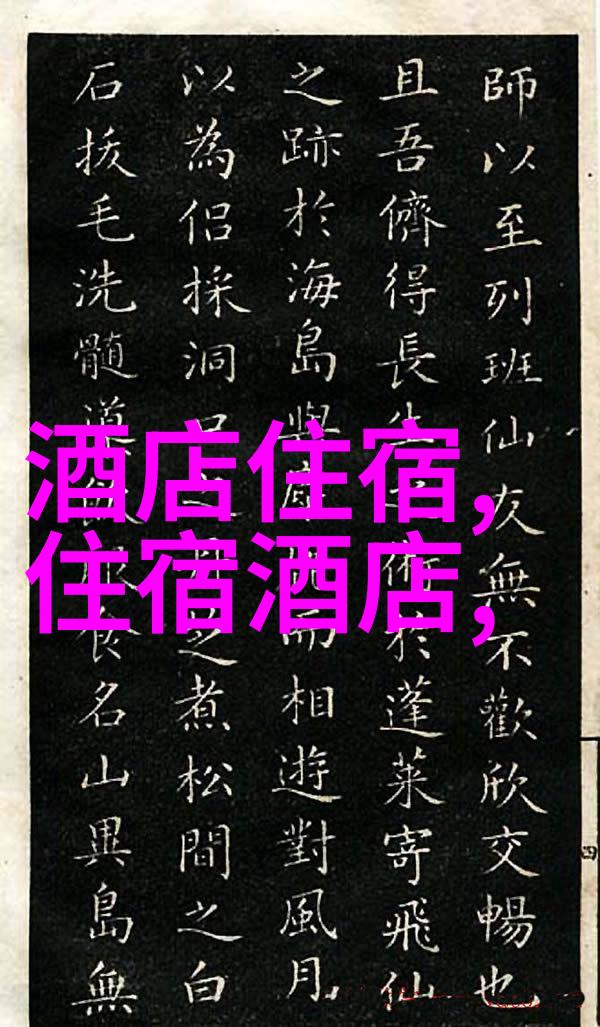 師以至列班仙友無不歡欣交暢也
且吾儕得長生術於蓬萊寄飛仙
之跡於海島與而相遊對風月
以為侣採洞之煮松間之白
石拔毛洗髓食名山異島無
酒店住宿,
住宿酒店,
四